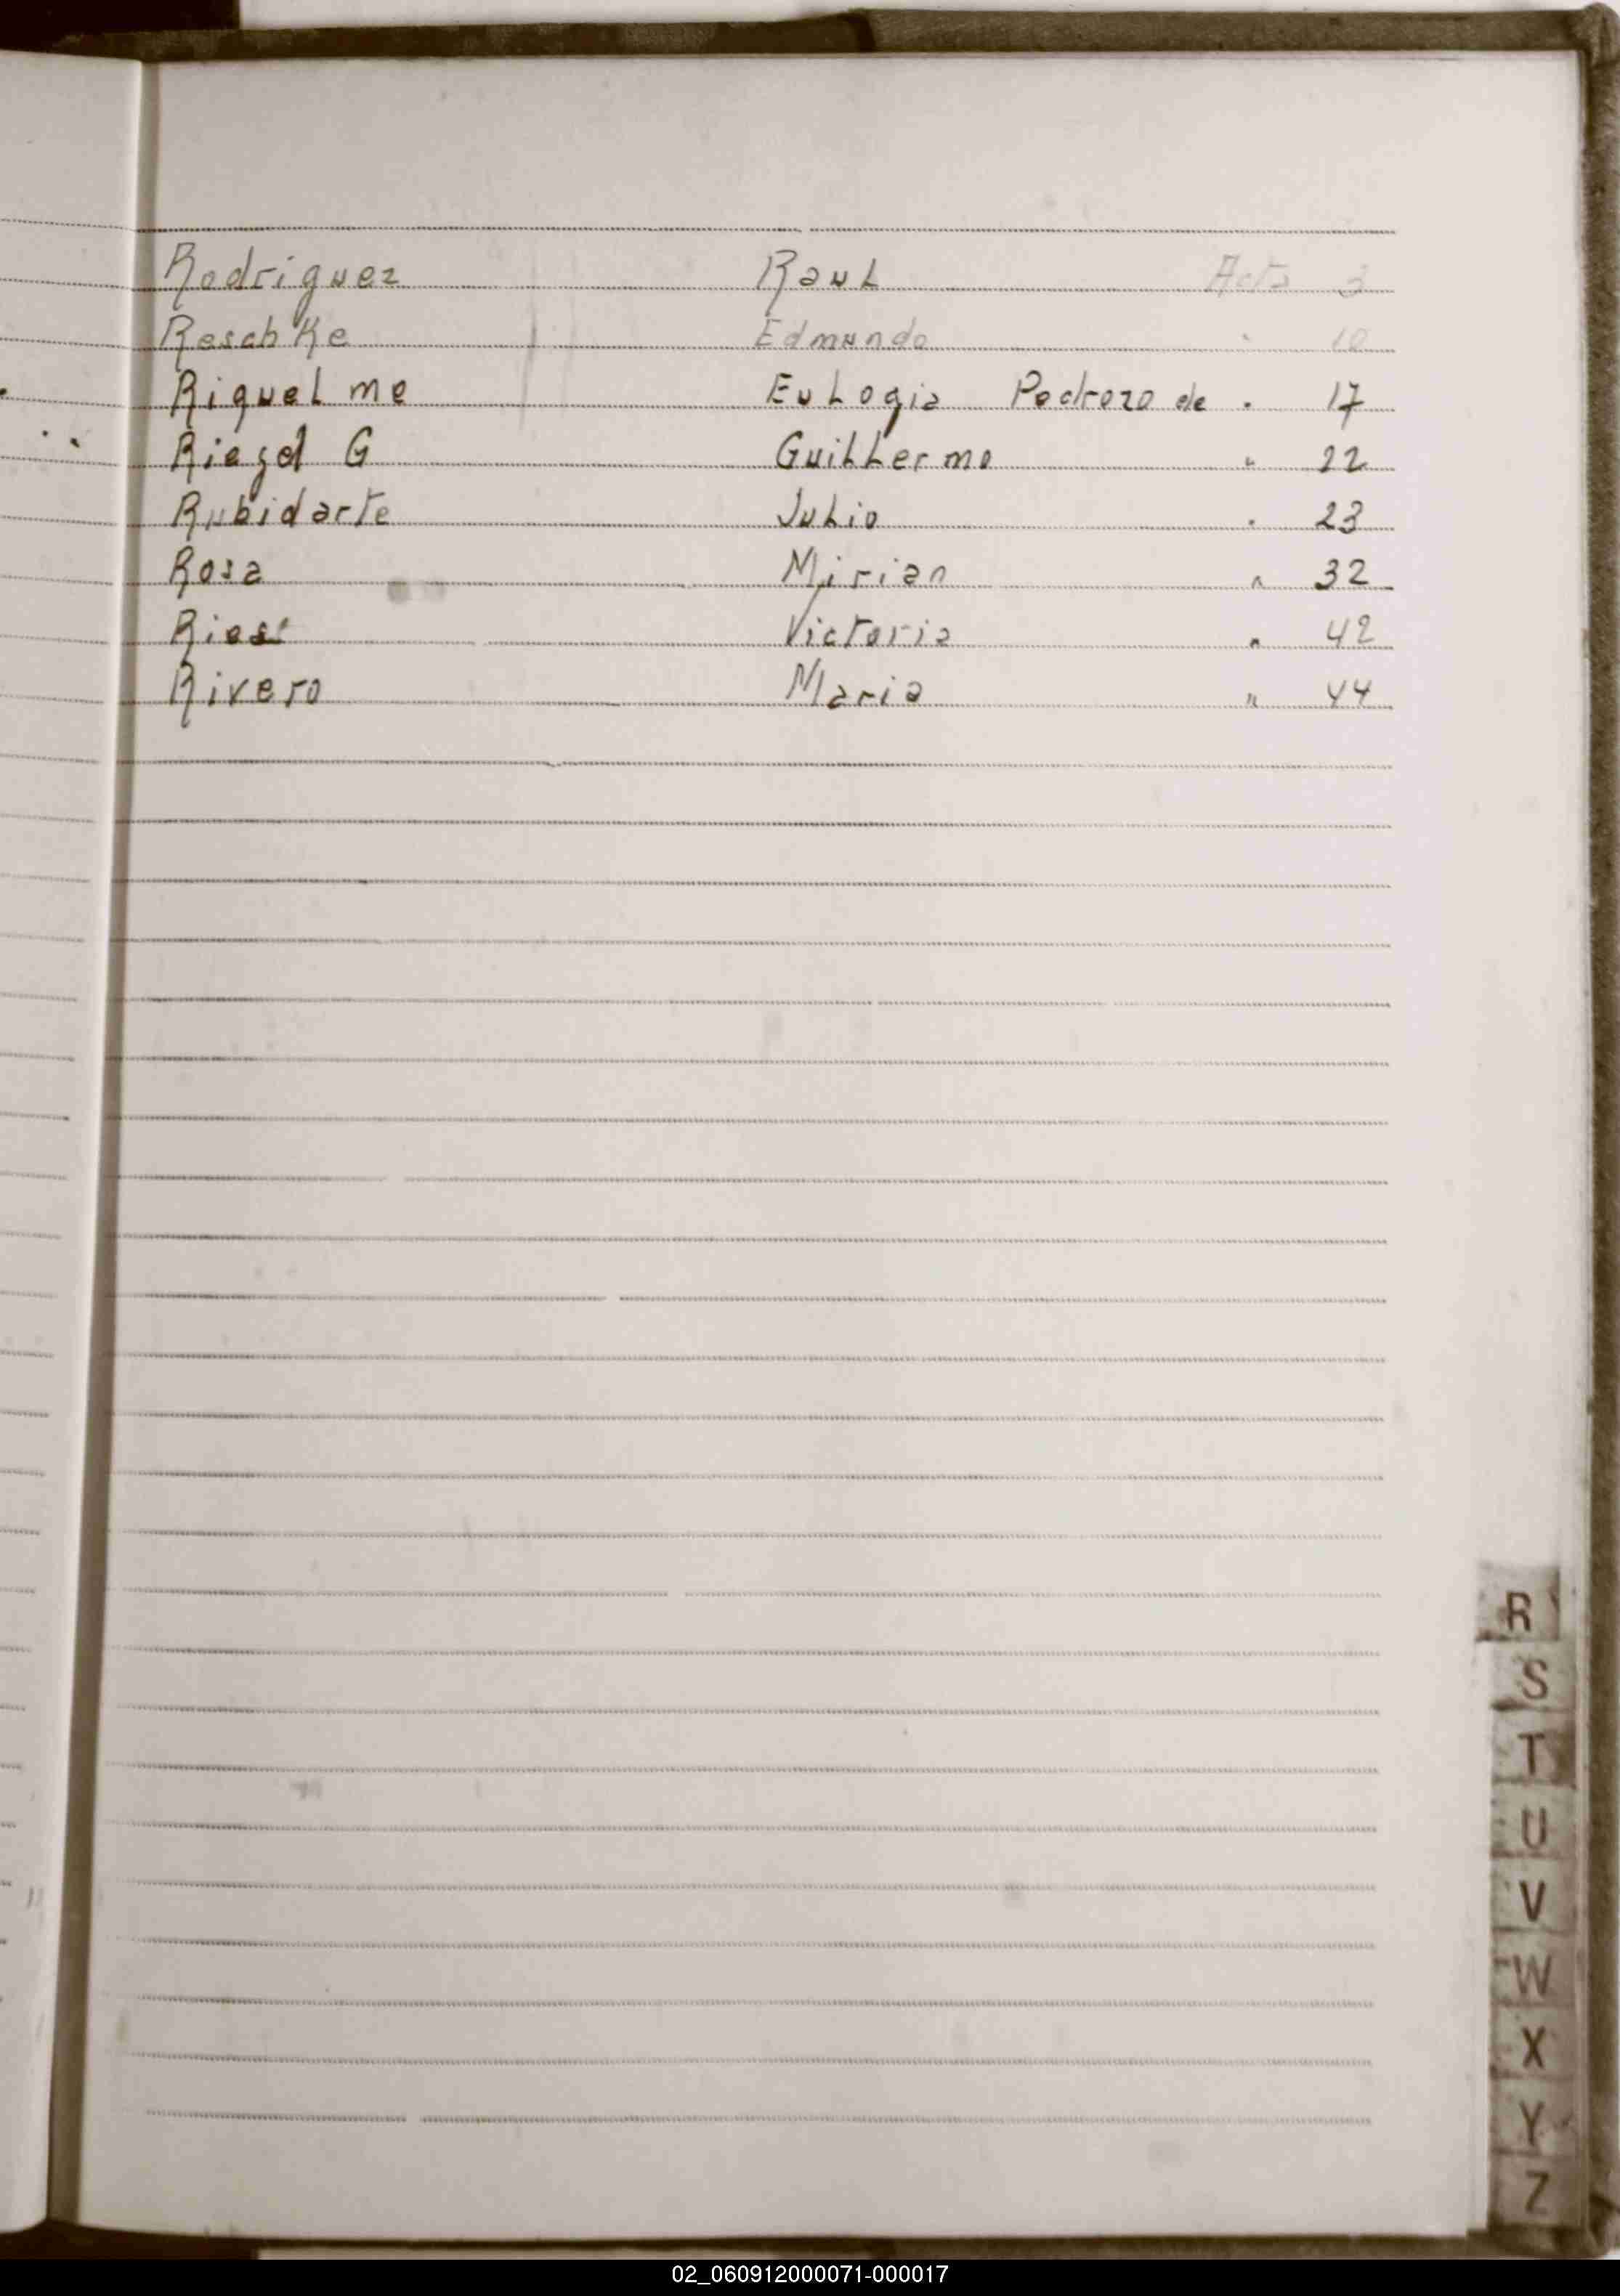 Rodriguez Raul Acta 3
Reschke Edmundo " 10
Riquelme Eulogia Pedrozo de " 17
Riegel G Guillermo " 22
Rubidarte Julio " 23
Rosa Mirian " 32
Rios Victoria " 42
Rivero Maria " 44
R
S
T
U
V
W
X
Y
Z
02_060912000071-000017